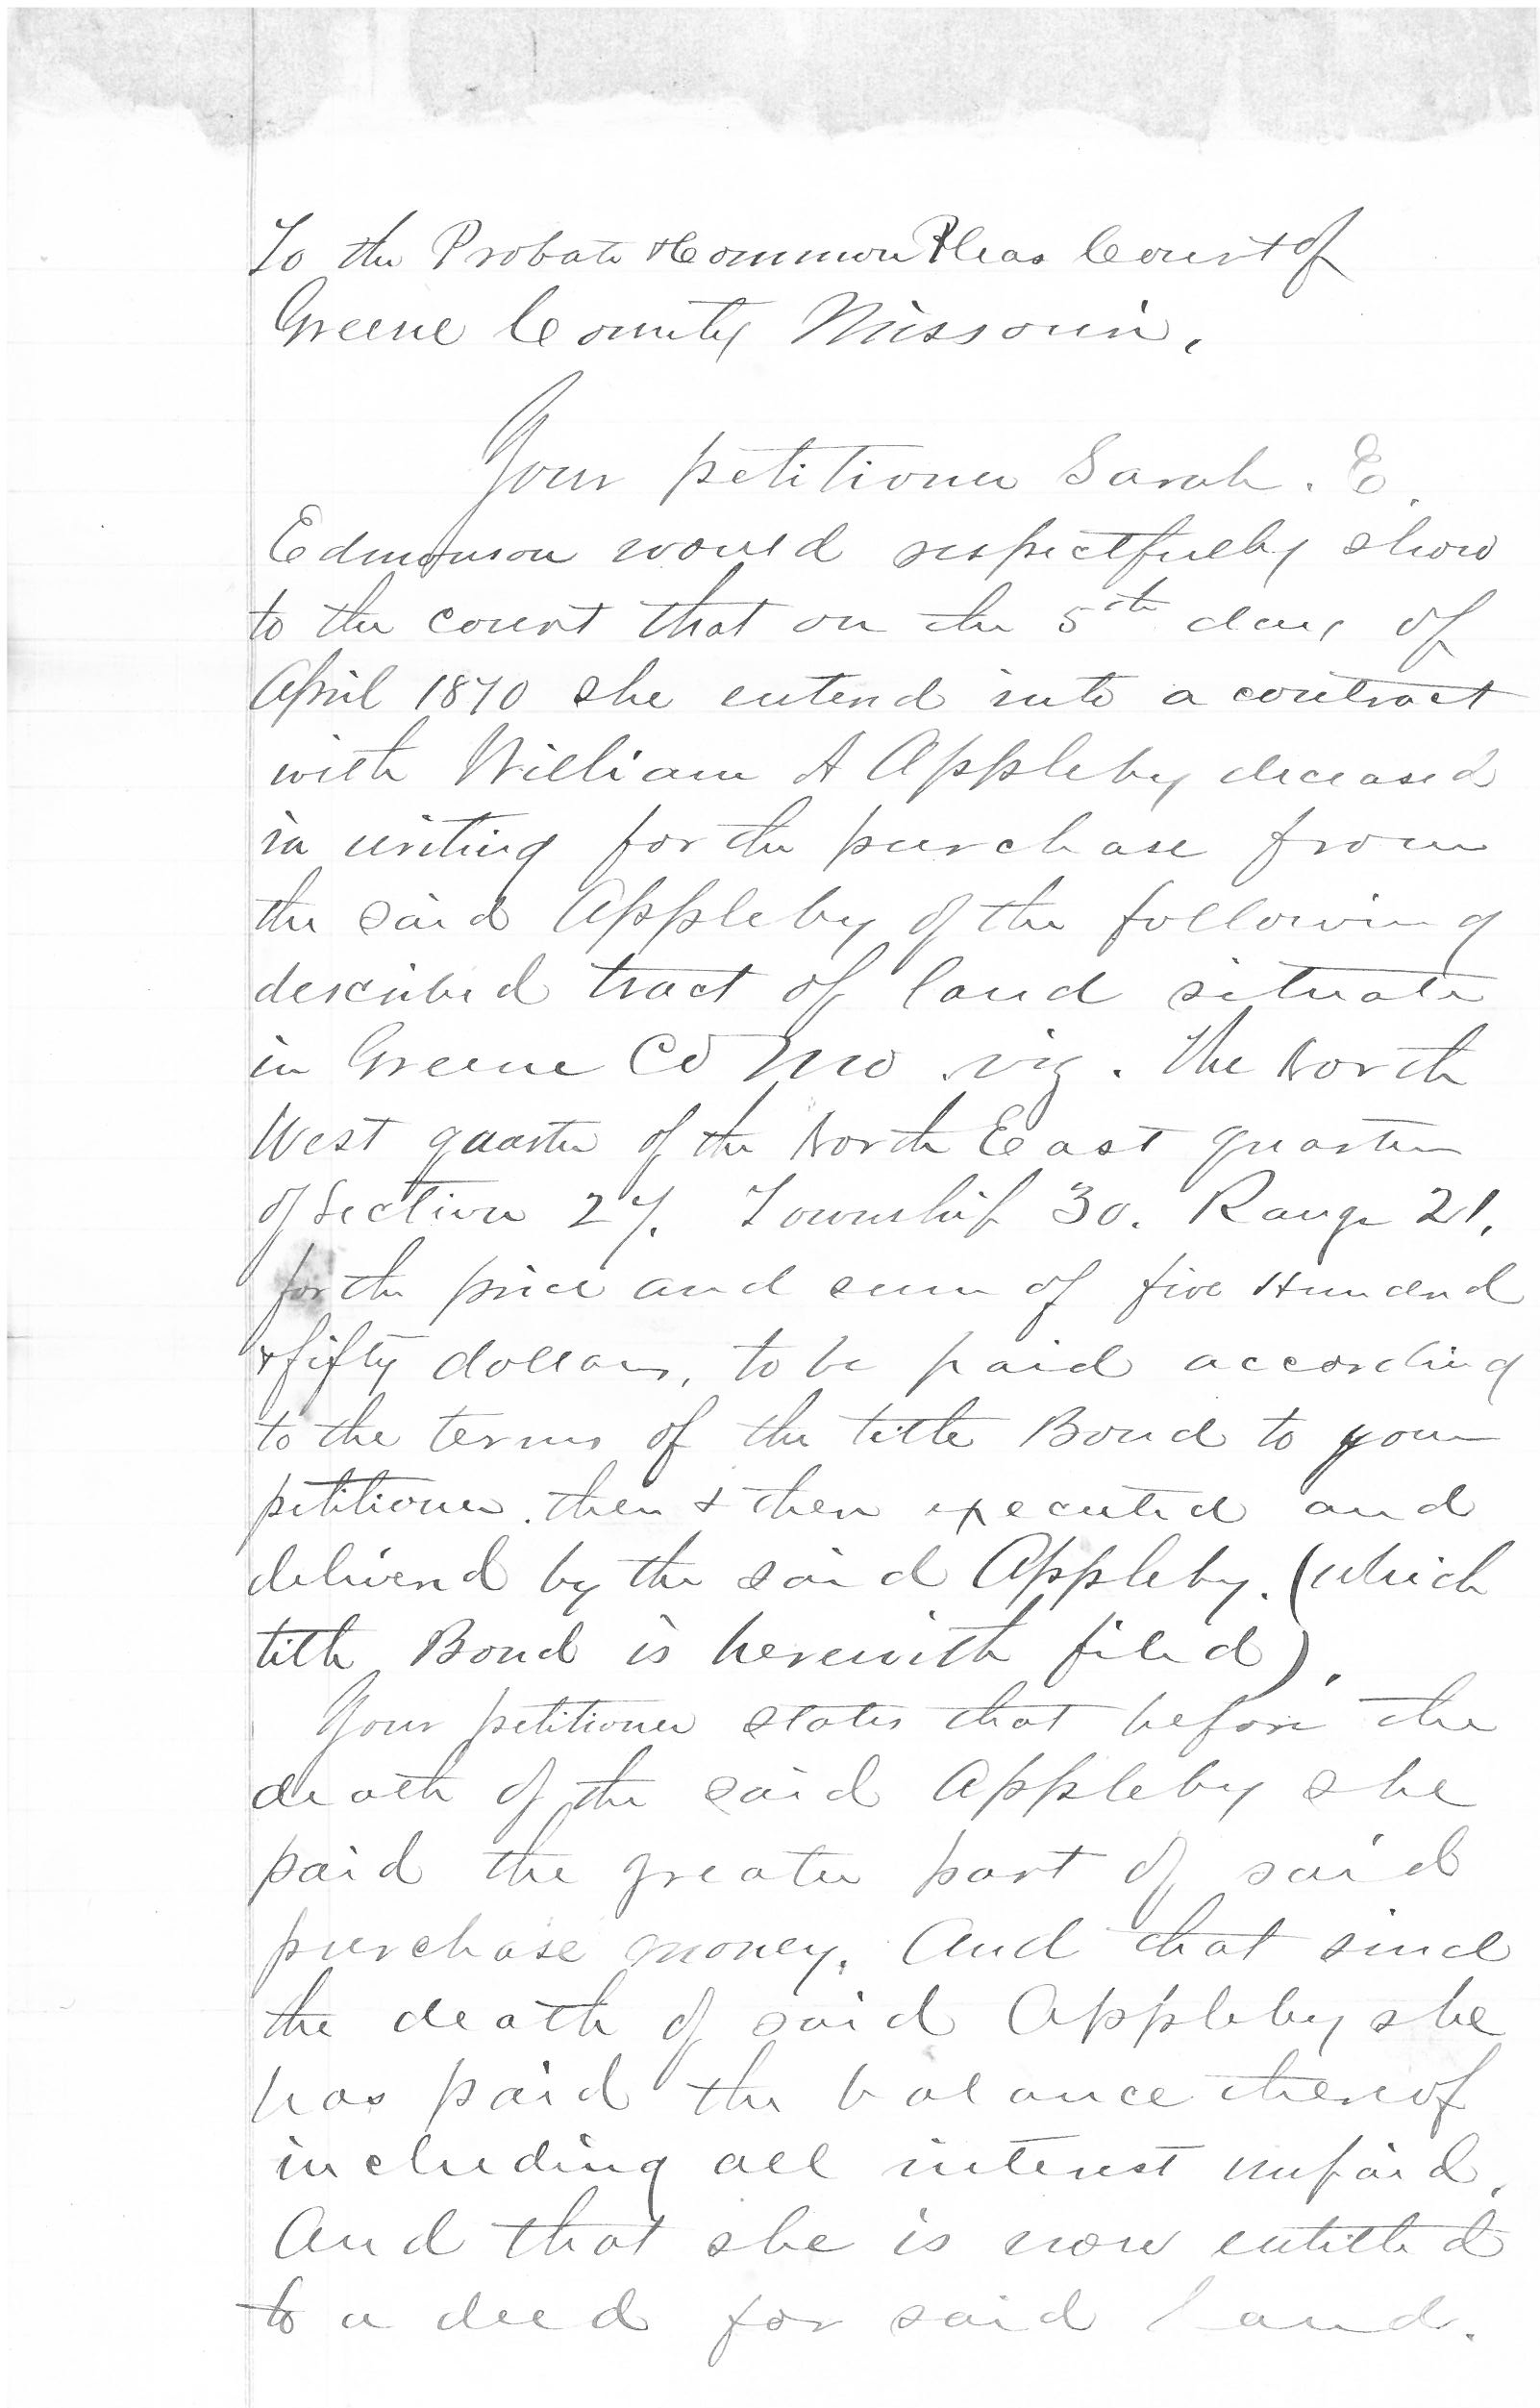 To the Probate & Common Pleas Court of
Greene County Missouri.
Your petitioner Sarah. E.
Edmonson would respectfully show
to the court that on the 5th day of
April 1870 she entered into a contract
with William A Appleby deceased
in writing for the purchase from
the said Appleby of the following
described tract of land situate
in Greene Co Mo viz. The North
West quarter of the North East quarter
of Section 27. Township 30. Range 21.
for the price and sum of five Hundred
& fifty dollars, to be paid according
to the terms of the title Bond to your
petitioner. then & there executed and
delivered by the said Appleby. (which
title Bond is herewith filed).
Your petitioner states that before the
death of the said Appleby she
paid the greater part of said
purchase money. And that since
the death of said Appleby she
has paid the balance thereof
including all interest unpaid.
And that she is now entitled
to a deed for said land.